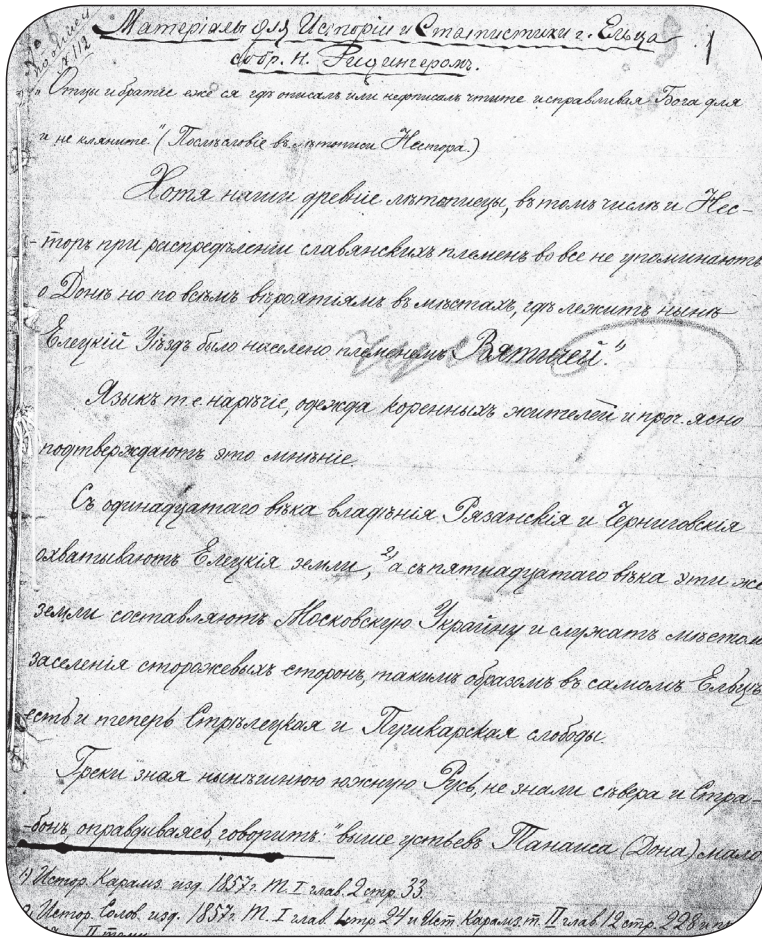 Матеріалы для Исторіи и Статистики г. Ельца
собр. Н. Ридингеромъ.
1
№
112
"Отци и братіе еже ся гдѣ описалъ или не описалъ чтите исправливая Бога для
и не кляните." (Послѣсловіе въ лѣтописи Нестора.)
Хотя наши древніе лѣтописцы, въ томъ числѣ и Нес-
-торъ при распредѣленіи славянскихъ племенъ во все не упоминаютъ
о Донѣ но по всѣмъ вѣроятіямъ въ мѣстахъ, гдѣ лежитъ нынѣ
Елецкій Уѣздъ было населено племенемъ Вятичей."
Языкъ т. е нарѣчіе, одежда коренныхъ жителей и проч. ясно
подтверждаютъ это мнѣніе.
Съ одинадцатаго вѣка владѣнія Рязанскія и Черниговскія
охватываютъ Елецкія земли, 2) а съ пятнадцатаго вѣка эти же
земли составляютъ Московскую Украйну и служатъ мѣстом
заселенія сторожевыхъ сторонъ, такимъ образомъ въ самомъ Ельцѣ
есть и теперь Стрѣлецкая и Пушкарская слободы.
Греки зная нынѣшнюю южную Русь, не знали сѣвера и Стра-
-бонъ оправдываясь, говоритъ: "выше устьевъ Танаиса (Дона) мало
1) Истор. Карамз. изд. 1857 г. Т. I глав. 2 стр. 33.
2) Истор. Солов. изд. 1857 г. Т. I глав. 1 стр. 24 и Ист. Карамз. т. II глав. 12 стр. 228 и
II